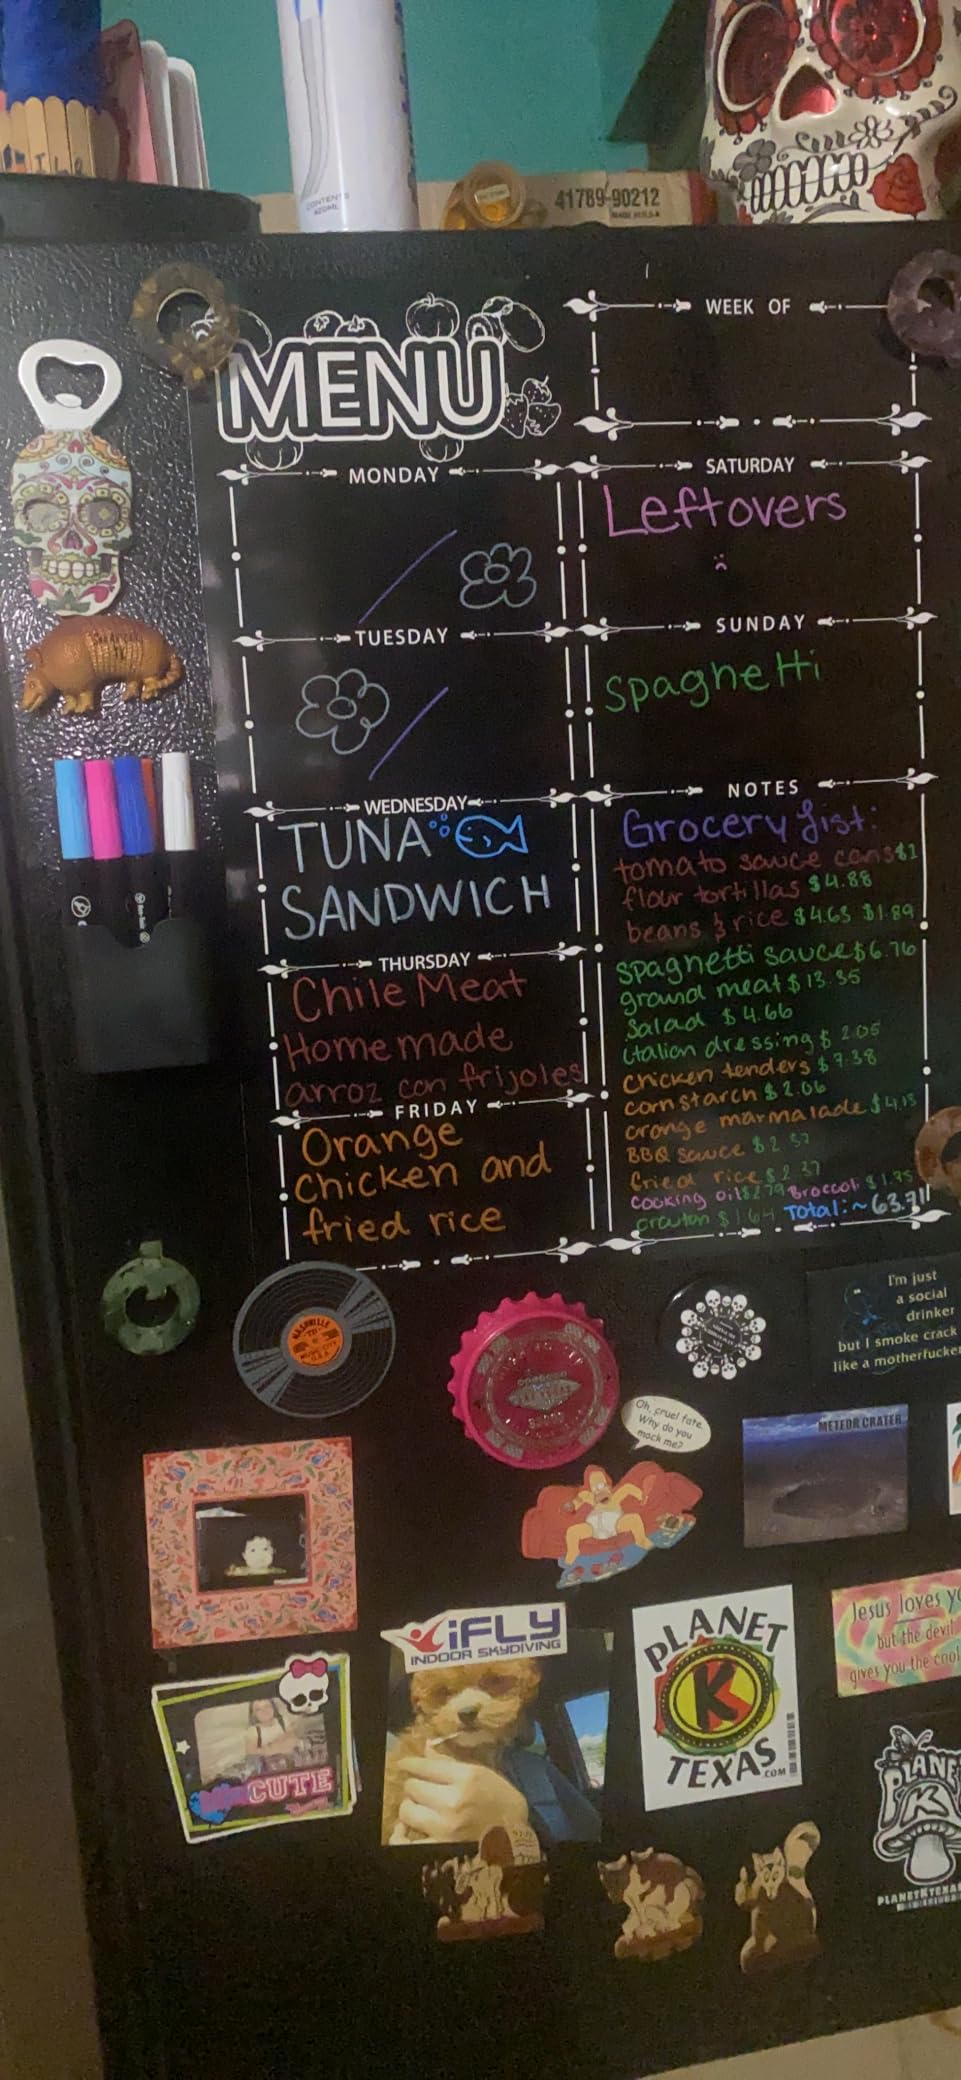 CONTENTS
41789-90212
MENU
WEEK OF
MONDAY
SATURDAY
Leftovers
TUESDAY
SUNDAY
spaghetti
WEDNESDAY
TUNA
SANDWICH
THURSDAY
Chile Meat
Homemade
arroz con frijoles
FRIDAY
Orange
chicken and
fried rice
NOTES
Grocery list:
tomato sauce cans $1
flour tortillas $4.88
beans & rice $4.63 $1.89
spaghetti sauce $6.76
ground meat $13.35
salad $4.66
italian dressing $2.05
chicken tenders $9.38
cornstarch $2.06
orange marmalade $4.13
BBQ sauce $2.57
fried rice $2.37
cooking oil $2.79 Broccoli $1.35
crouton $1.64 Total:~63.71
NASHVILLE
MUSIC CITY
U.S.A.
I'm just
a social
drinker
but I smoke crack
like a motherfucker
Oh, cruel fate.
Why do you
mock me?
METEOR CRATER
iFLY
INDOOR SKYDIVING
PLANET
K
TEXAS
.COM
Jesus loves yo
but the devil
gives you the cool
CUTE
PLANE
K
PLANETKTEXAS